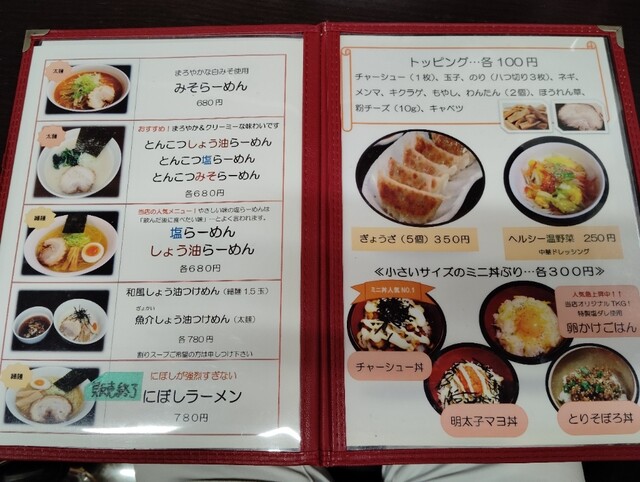 太麺
まろやかな白みそ使用
みそらーめん
680円
太麺
おすすめ！まろやか&クリーミーな味わいです
とんこつしょう油らーめん
とんこつ塩らーめん
とんこつみそらーめん
各680円
細麺
当店の人気メニュー！やさしい味の塩らーめんは
「飲んだ後に食べたい味」…とよく言われます。
塩らーめん
しょう油らーめん
各680円
和風しょう油つけめん（細麺1.5玉）
ぎょかい
魚介しょう油つけめん（太麺）
各780円
割りスープご希望の方は申しつけ下さい
細麺
販売終了
にぼしが強烈すぎない
にぼしラーメン
780円
トッピング…各100円
チャーシュー（1枚）、玉子、のり（八つ切り3枚）、ネギ、
メンマ、キクラゲ、もやし、わんたん（2個）、ほうれん草、
粉チーズ（10g）、キャベツ
ぎょうざ（5個）350円
ヘルシー温野菜 250円
中華ドレッシング
≪小さいサイズのミニ丼ぶり…各300円≫
ミニ丼人気NO.1
チャーシュー丼
人気急上昇中！！
当店オリジナルTKG！
特製塩ダレ使用
卵かけごはん
明太子マヨ丼
とりそぼろ丼